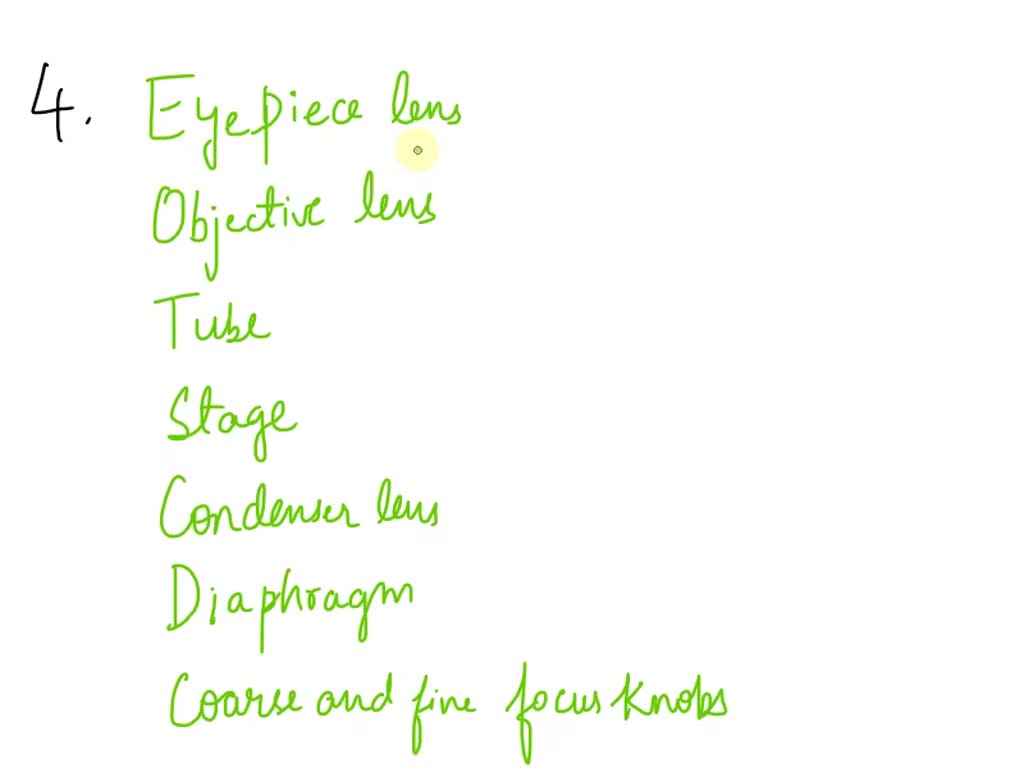 4. Eyepiece lens
Objective lens
Tube
Stage
Condenser lens
Diaphragm
Coarse and fine focus knobs